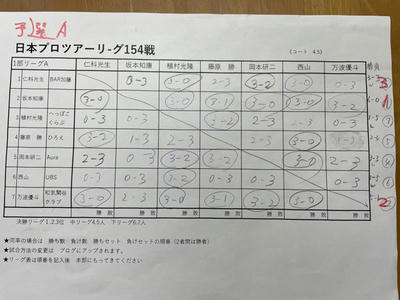 予選 A
日本プロツアーリーグ154戦
(コート 4.5)
1部リーグA 仁科光生 坂本知康 植村光隆 藤原 勝 岡本研二 西山 万波優斗 勝負
1 仁科光生 BAR加藤 0-3 3-0 2-3 3-2 3-0 0-3 3
2 坂本知康 3-0 3-0 3-1 3-0 3-0 3-2 1
3 植村光隆 へっぽこくらぶ 0-3 0-3 3-2 2-3 3-0 0-3
4 藤原 勝 ひろえ 3-2 1-3 2-3 3-2 3-0
5 岡本研二 Aura 2-3 0-3 3-2 2-3 3-0 2-3
6 西山 UBS 0-3 0-3 0-3 0-3 0-3 0-3
7 万波優斗 和気閑谷クラブ 3-0 2-3 3-0 3-1 3-2 3-0 2
勝 敗 勝 敗 勝 敗 勝 敗 勝 敗 勝 敗 勝 敗
決勝リーグ1.2.3位 中リーグ4.5人 下リーグ6.7人
★同率の場合は 勝ち数 負け数 勝ちセット 負けセットの順番(2者間は勝者)
★試合方法の変更は ブログにアップされます。
★リーグ表は順番を記入後 本部にもってきてください